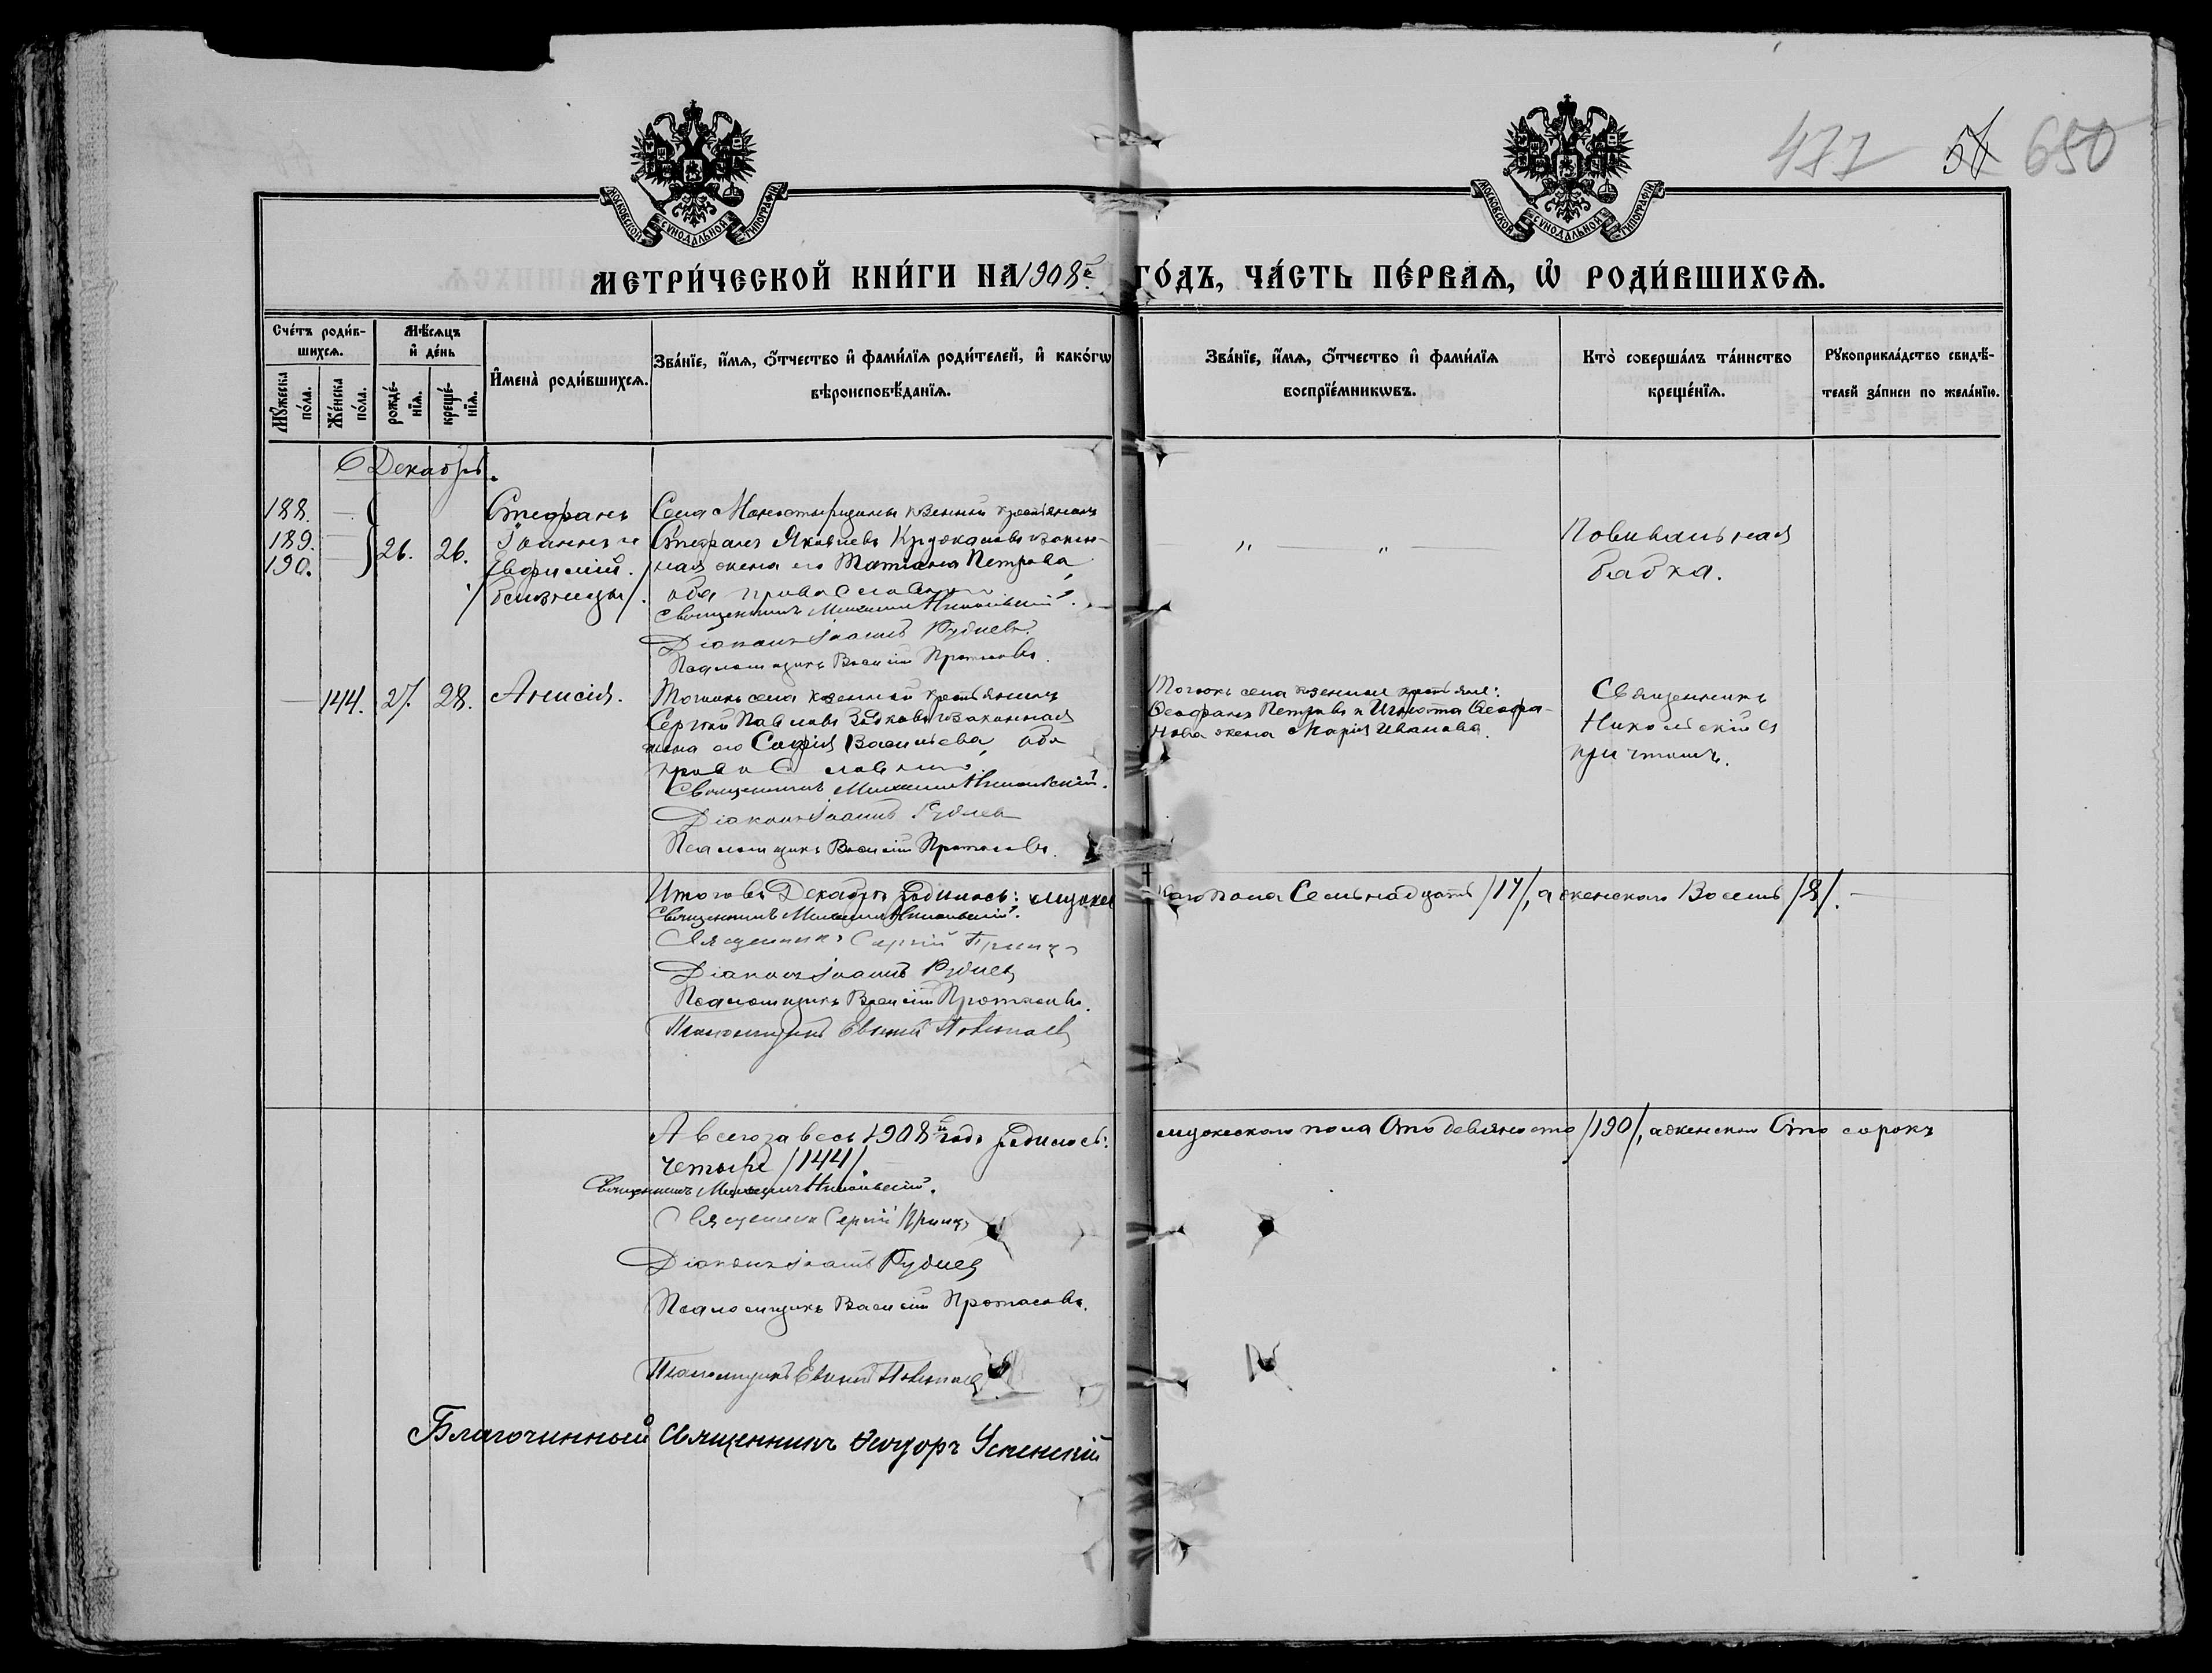 477 57 650
МОСКОВСКОЙ СУНОДАЛЬНОЙ ТИПОГРАФІИ
МОСКОВСКОЙ СУНОДАЛЬНОЙ ТИПОГРАФІИ
МЕТРИ́ЧЕСКОЙ КНИ́ГИ НА 1908й ГО́ДЪ, ЧА́СТЬ ПЕ́РВАѦ, Ѡ҆ РОДИ́ВШИХСѦ.
Сче́тъ роди́в-
шихсѧ.
Мꙋ́жеска по́ла.
Же́нска по́ла.
Мѣ́сѧцъ
и҆ де́нь
рожде́-
нїѧ.
креще́-
нїѧ.
И҆мена̀ роди́вшихсѧ.
Зва́нїе, и҆́мѧ, ѻ҆́тчество и҆ фами́лїѧ роди́телей, и҆ како́гѡ
вѣроисповѣ́данїѧ.
Зва́нїе, и҆́мѧ, ѻ҆́тчество и҆ фами́лїѧ
воспрїе́мникѡвъ.
Кто̀ соверша́лъ та́инство
креще́нїѧ.
Рꙋкоприкла́дство свидѣ́-
телей за́писи по жела́нїю.
Декабрь.
188.
189.
190.
26. 26.
Стефанъ
Іоаннъ и
Евфимій.
/близнецы/.
Села Монастырщины казенный крестьянинъ
Стефанъ Яковлевъ и закон-
ная жена его Татіана Петрова
оба православные.
Священникъ Михаилъ Никольскій.
Діаконъ Іоаннъ Рублевъ.
Псаломщикъ Василій Протасовъ.
— „ — „ —
Повивальная
бабка.
— 144. 27. 28. Анисія.
Тогоже села казенный крестьянинъ
Сергѣй Павловъ и законная
жена его Софія Васильева, оба
православные.
Священникъ Михаилъ Никольскій.
Діаконъ Іоаннъ Рублевъ
Псаломщикъ Василій Протасовъ.
Тогоже села казенный крестьян:
Ѳеофанъ Петровъ и Ѳеофа-
нова жена Марія Иванова.
Священникъ
Никольскій съ
причтомъ.
Итого въ Декабрѣ родилось: мужес каго пола Семьнадцать /17/, а женскаго Восемь /8/. —
Священникъ Михаилъ Никольскій.
Священникъ Сергій
Діаконъ Іоаннъ Рублевъ
Псаломщикъ Василій Протасовъ.
Псаломщикъ
А всего за весь 1908й годъ родилось: мужескаго пола Сто девяносто /190/, а женскаго Сто сорокъ
четыре /144/.
Священникъ Михаилъ Никольскій.
Священникъ Сергій
Діаконъ Іоаннъ Рублевъ
Псаломщикъ Василій Протасовъ.
Псаломщикъ
Благочинный Священникъ Ѳеодоръ Успенскій